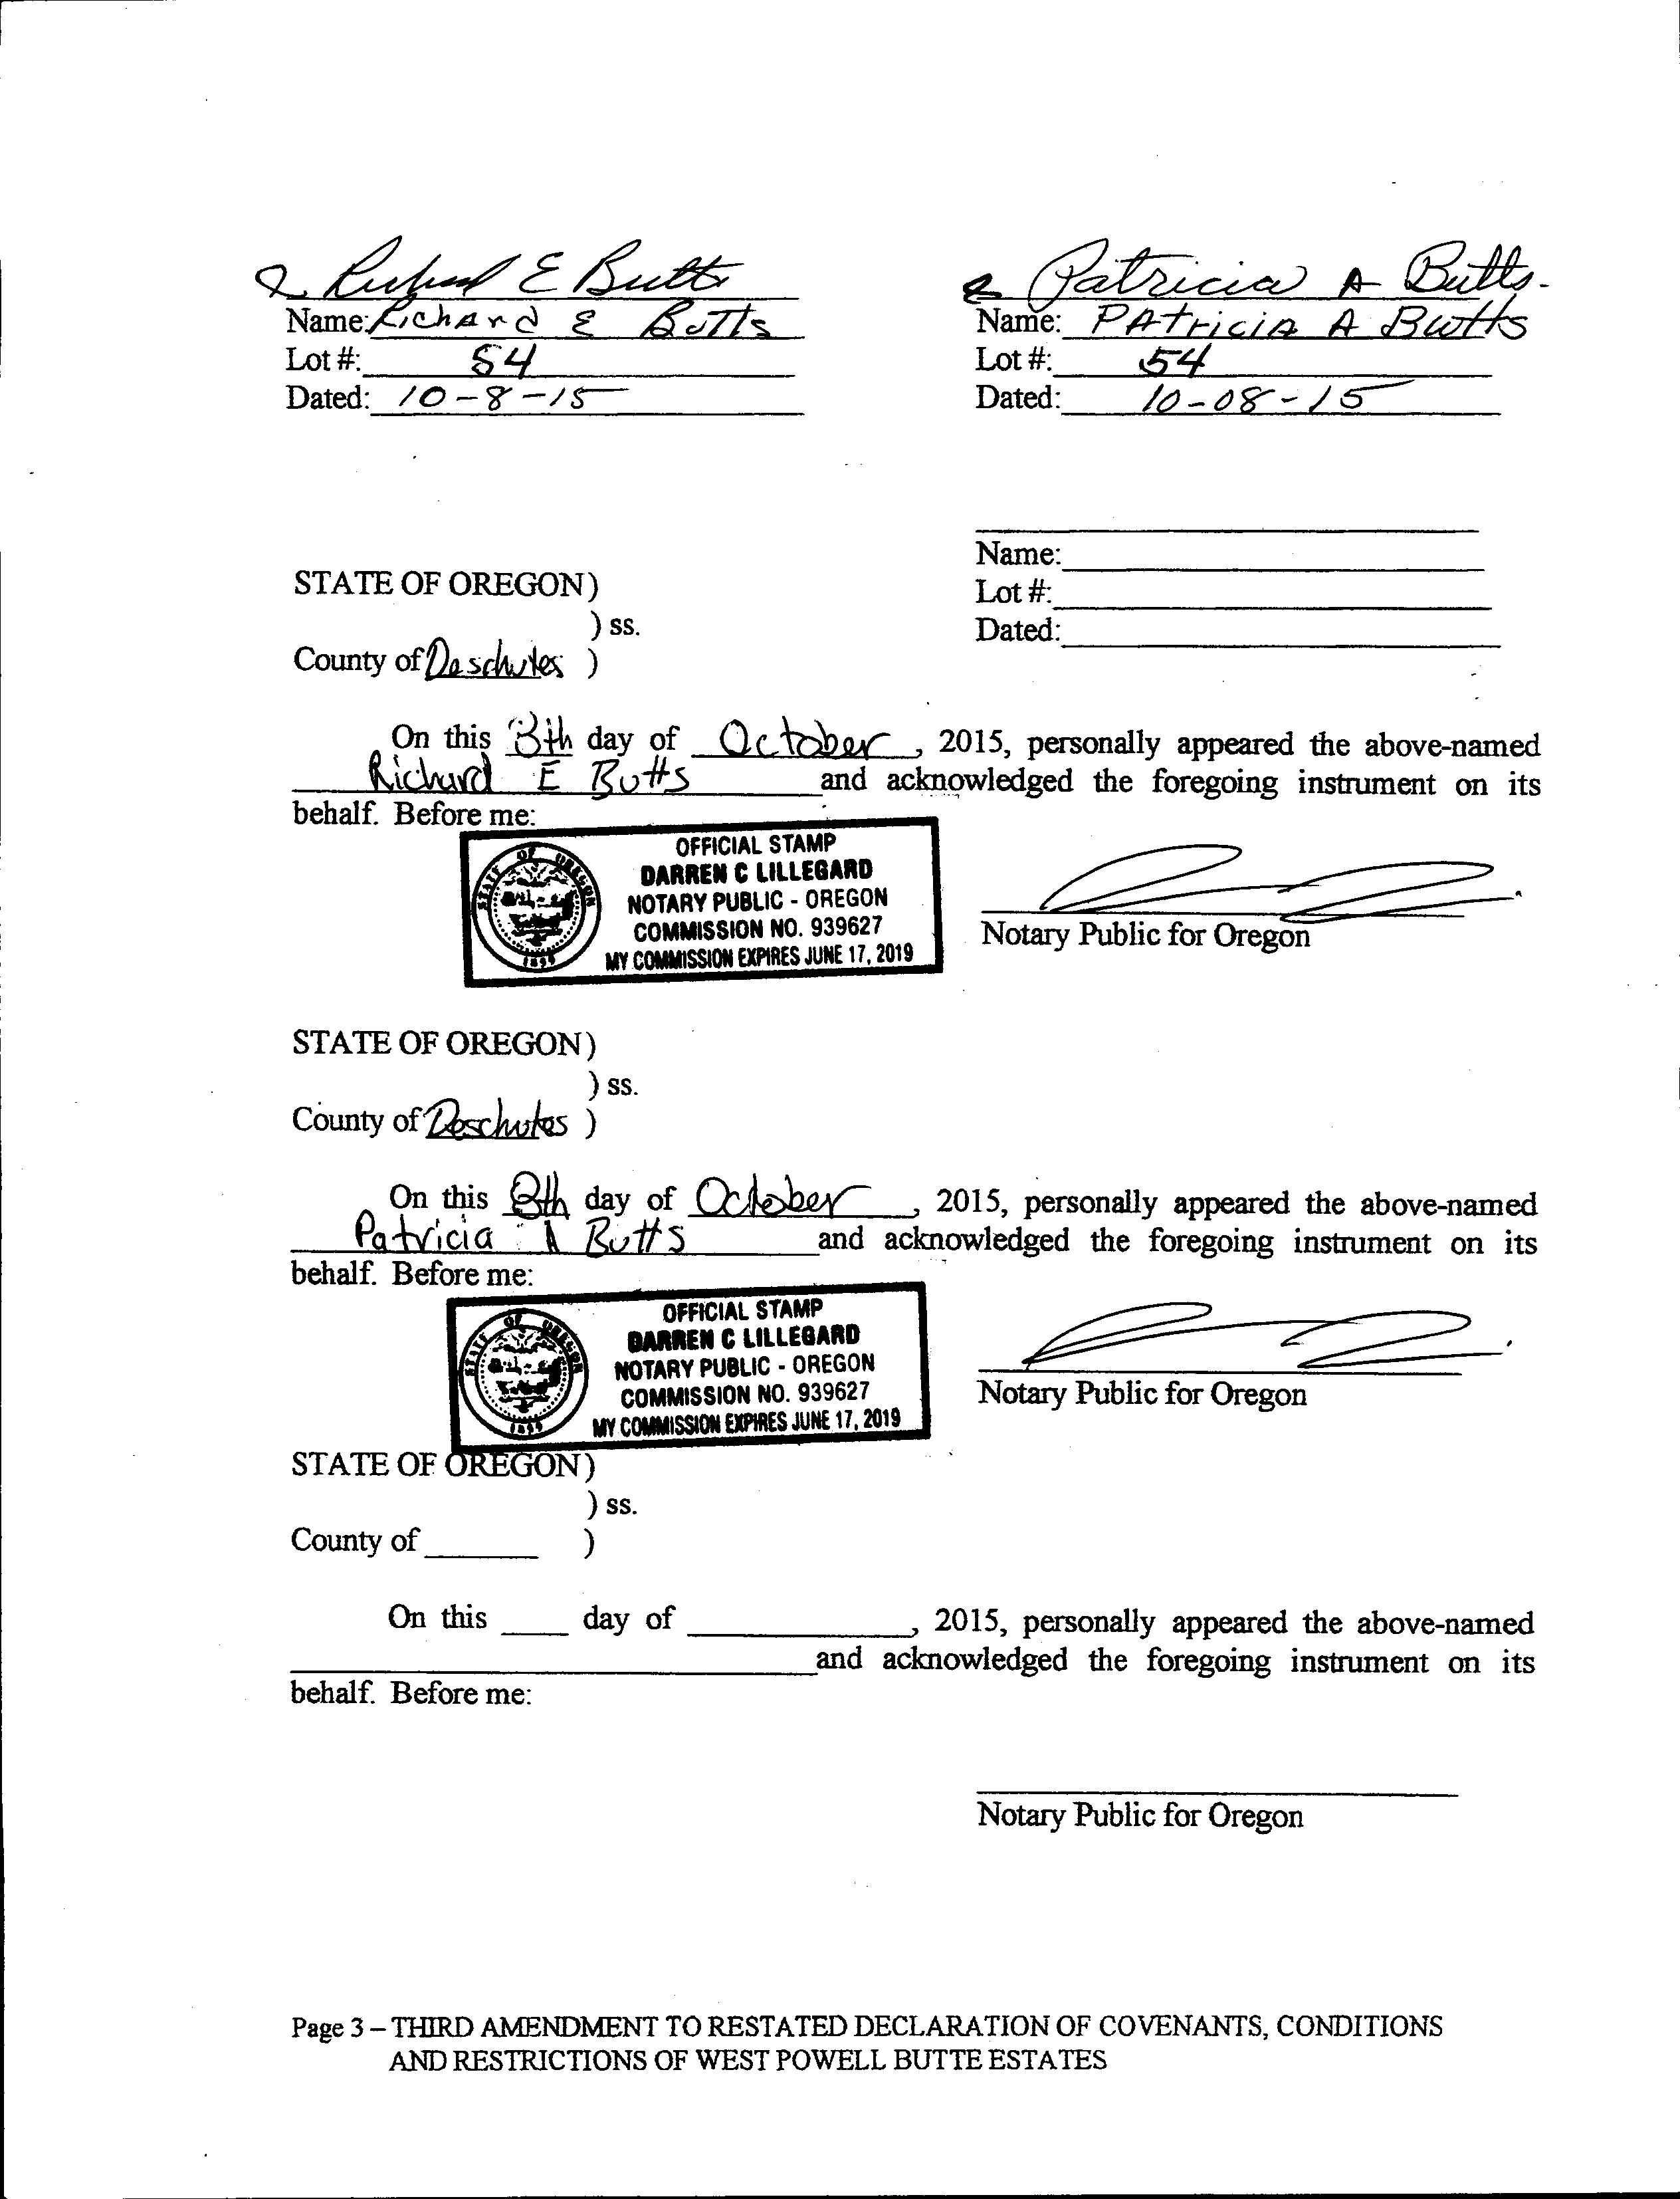 Richard E Butts
Name: Richard E Butts
Lot #: 54
Dated: 10-8-15
Patricia A Butts
Name: PAtriciA A Butts
Lot #: 54
Dated: 10-08-15
Name:
Lot #:
Dated:
STATE OF OREGON)
) ss.
County of Deschutes )
On this 8th day of October, 2015, personally appeared the above-named
Richard E Butts and acknowledged the foregoing instrument on its
behalf. Before me:
OFFICIAL STAMP
DARREN C LILLEGARD
NOTARY PUBLIC - OREGON
COMMISSION NO. 939627
MY COMMISSION EXPIRES JUNE 17, 2019
STATE OF OREGON
1859
Notary Public for Oregon
STATE OF OREGON)
) ss.
County of Deschutes )
On this 8th day of October, 2015, personally appeared the above-named
Patricia A Butts and acknowledged the foregoing instrument on its
behalf. Before me:
OFFICIAL STAMP
DARREN C LILLEGARD
NOTARY PUBLIC - OREGON
COMMISSION NO. 939627
MY COMMISSION EXPIRES JUNE 17, 2019
STATE OF OREGON
1859
Notary Public for Oregon
STATE OF OREGON)
) ss.
County of )
On this day of , 2015, personally appeared the above-named
and acknowledged the foregoing instrument on its
behalf. Before me:
Notary Public for Oregon
Page 3 – THIRD AMENDMENT TO RESTATED DECLARATION OF COVENANTS, CONDITIONS
AND RESTRICTIONS OF WEST POWELL BUTTE ESTATES